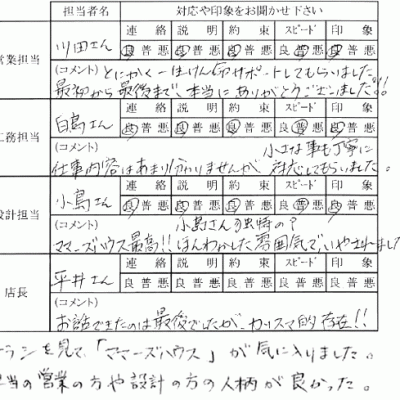 担当者名 対応や印象をお聞かせ下さい
営業担当 川田さん 連絡 説明 約束 スピード 印象
良普悪 良普悪 良普悪 良普悪 良普悪
(コメント) とにかく一生けん命サポートしてもらいました。
最初から最後まで、本当にありがとうございました!!
工務担当 白鳥さん 連絡 説明 約束 スピード 印象
良普悪 良普悪 良普悪 良普悪 良普悪
(コメント) 小さな事も丁寧に
仕事内容はあまり分かりませんが 対応してもらいました。
設計担当 小島さん 連絡 説明 約束 スピード 印象
良普悪 良普悪 良普悪 良普悪 良普悪
(コメント) 小島さん独特の?
ママーズハウス最高!! ほんわかした雰囲気で、いやされました
店長 平井さん 連絡 説明 約束 スピード 印象
良普悪 良普悪 良普悪 良普悪 良普悪
(コメント)
お話できたのは最後でしたが、カリスマ的存在!!
ランを見て、「ママーズハウス」が気に入りました。
当の営業の方や設計の方の人柄が良かった。